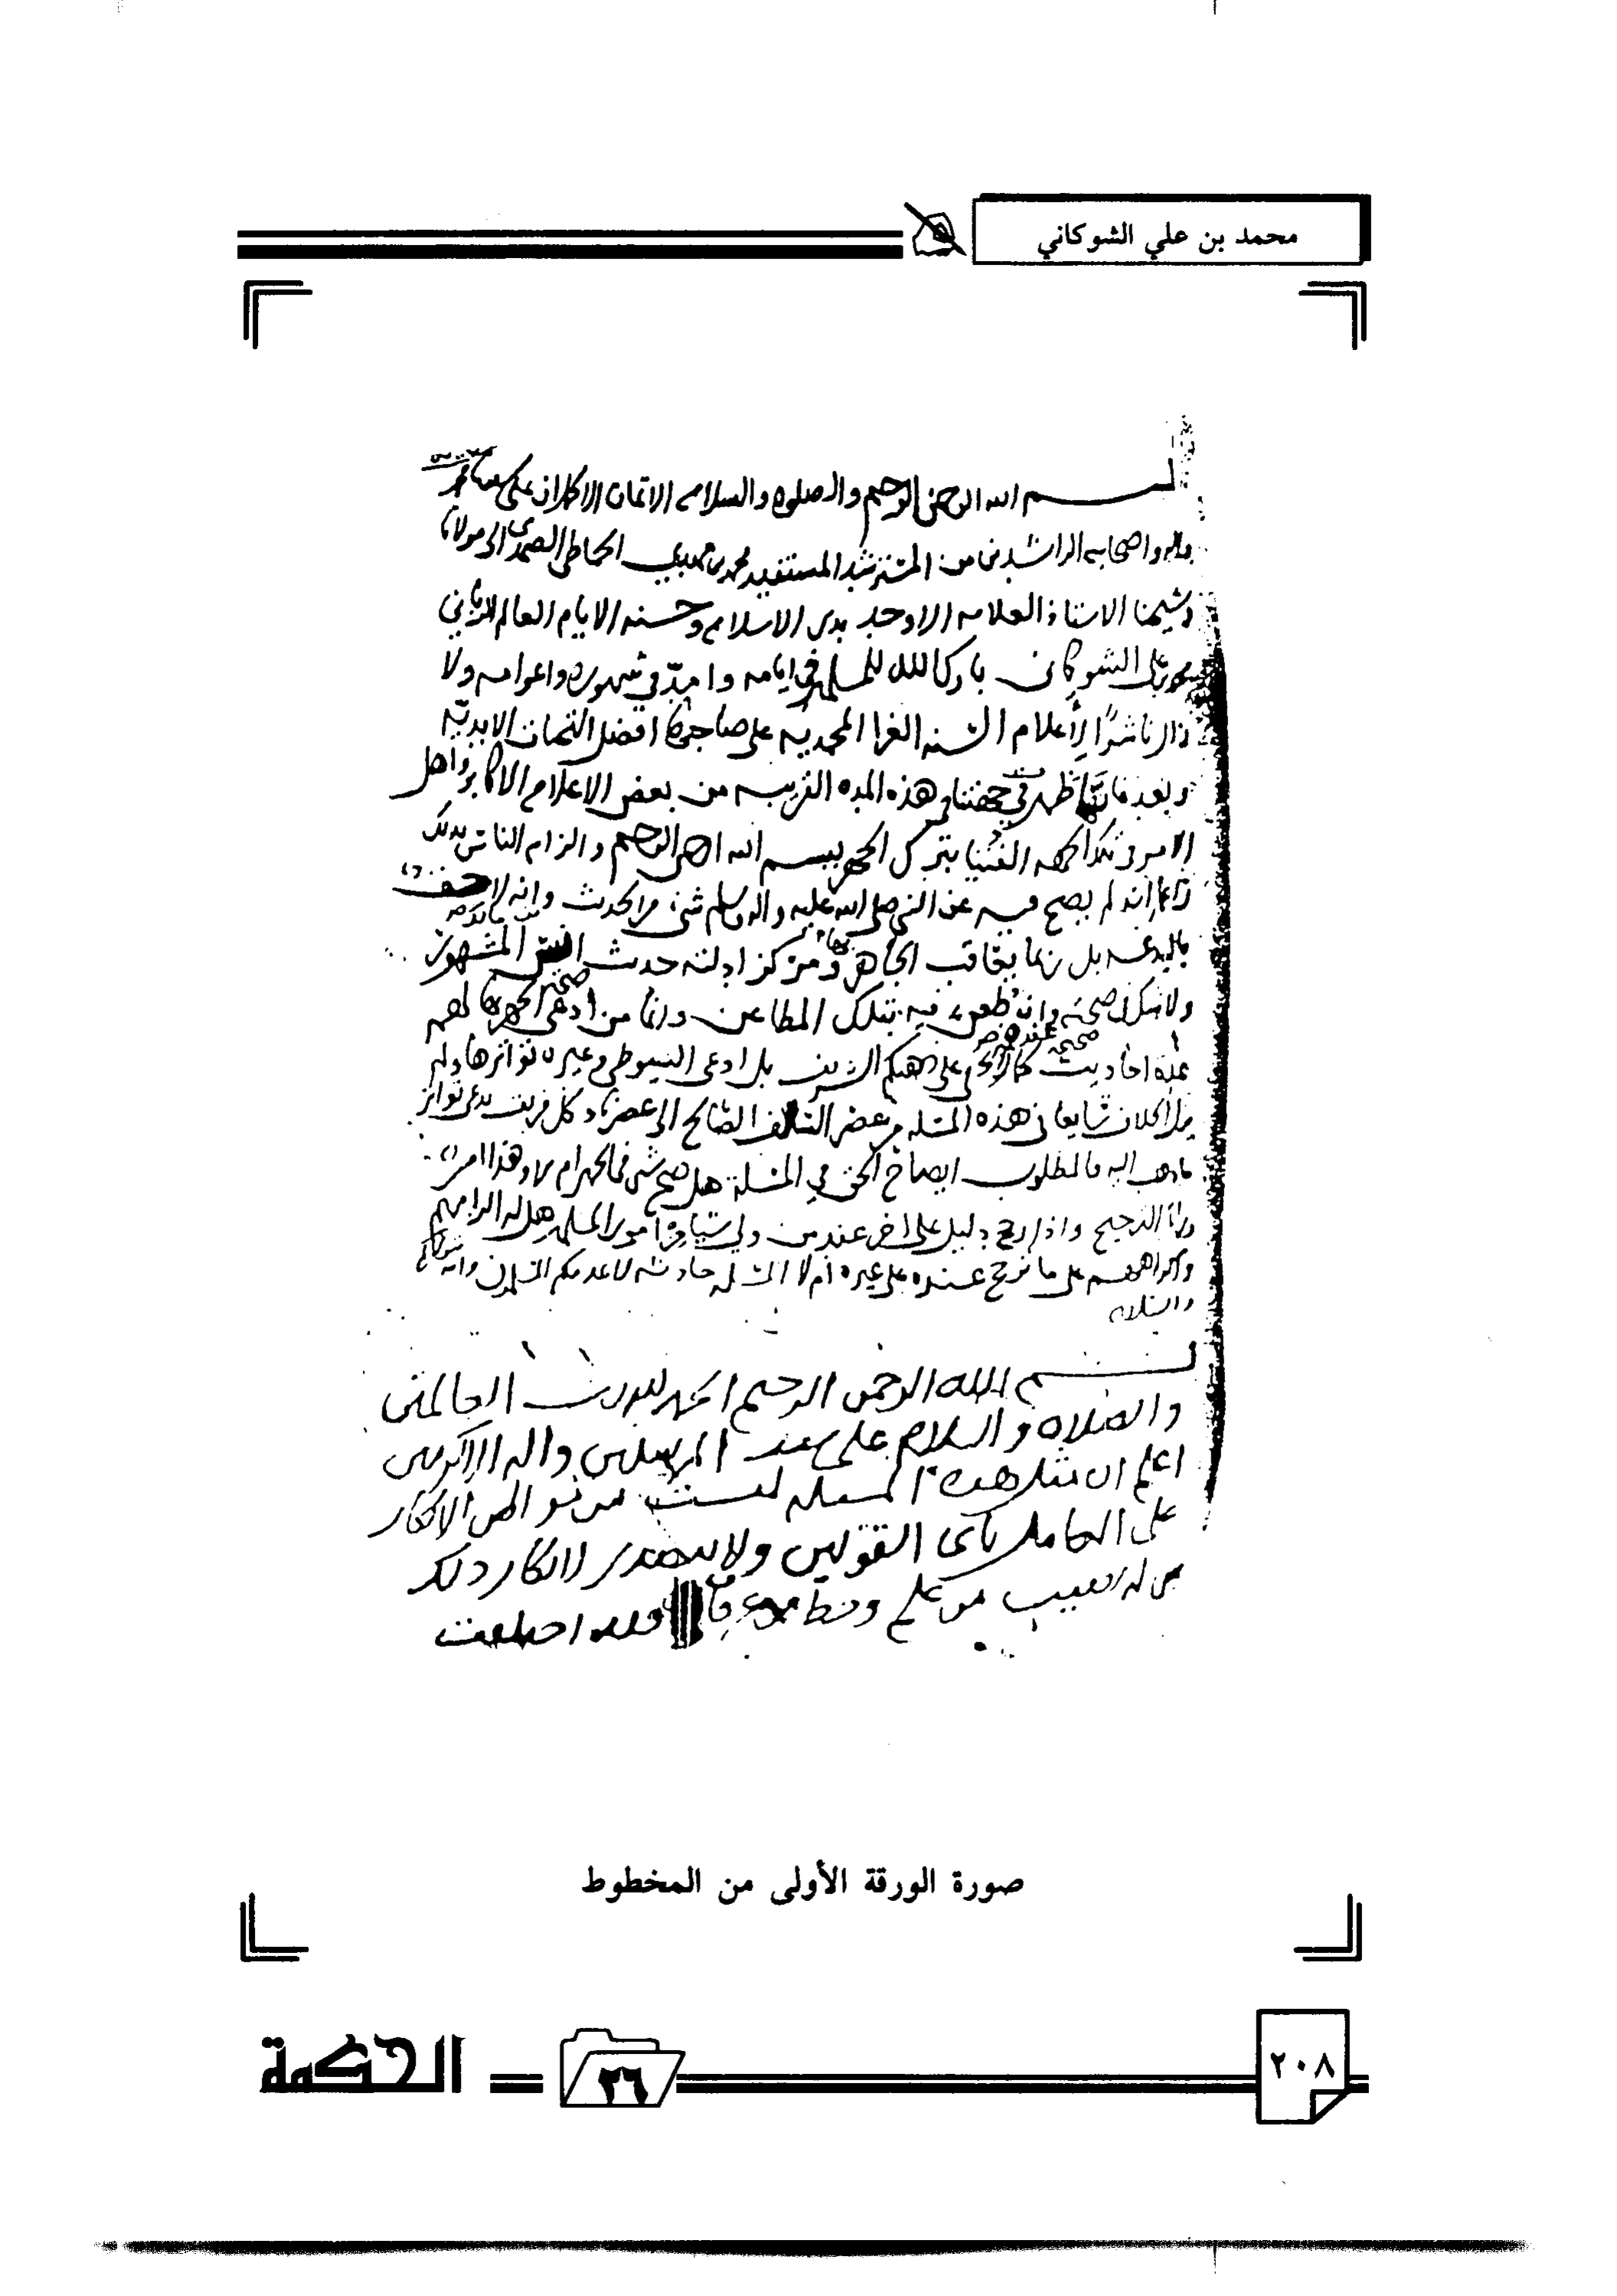 محمد بن علي الشوكاني
بسم الله الرحمن الرحيم والصلوه والسلام الاتمان الاكملان على سيدنا محمد
واله واصحابه الراشدين من المسترشد المستفيد محمد بن مهدي الحماطي الصمدي الى مولانا
وشيخنا الاستاذ العلامه الاوحد بدر الاسلام وحسنه الايام العالم الرباني
محمد بن علي الشوكاني بارك الله للمسلمين في ايامه وامد في شهوره واعوامه ولا
زال ناشرًا لأعلام السنه الغرا المحمديه على صاحبها افضل التحيات الابديه
وبعد فانها ظهرت في جهتنا في هذه المده القريبه من بعض الاعلام الاكابر واهل
الامر في تلك الجهه الفتيا بترك الجهر ببسم الله الرحمن الرحيم والزام الناس بذلك
زاعما انه لم يصح فيه عن النبي صلى الله عليه واله وسلم شي من الحديث وانه
بالبدعه بل ربما يعاقب الجاهر بها ومركز ادلته حديث انس المشهور
ولا شك في صحته وانه طعن فيه بتلك المطاعن واما من ادعى الجهر بها فلهم
عدة احاديث صحيحه عندهم كما لا يخفى على ذهنكم الشريف بل ادعى السيوطي وغيره تواترها ولم
يزل الخلاف شايعا في هذه المسله من عصر السلف الصالح الى عصرنا وكل فريق يدعي تواتر
ما ذهب اليه فالمطلوب ايضاح الحق في المسئلة هل صح شي في الجهر ام لا وهذا امر
وراء الترجيح واذا رجح دليل على اخر عند من ولي شيا من امور المسلمين هل له الزامهم
واكراههم على ما ترجح عنده على غيره ام لا المسله حادثه لا عدمكم المسلمون
والسلام
بسم الله الرحمن الرحيم الحمد لله رب العالمين
والصلاة والسلام على سيد المرسلين واله الاكرمين
اعلم ان مثل هذه المسئله ليست من مواطن الانكار
على العامل باى القولين ولا يتصدر لانكار ذلك
من له نصيب من علم وحظ من عرفان فقد اختلفت
صورة الورقة الأولى من المخطوط
٢٠٨
٢٦
الحكمة